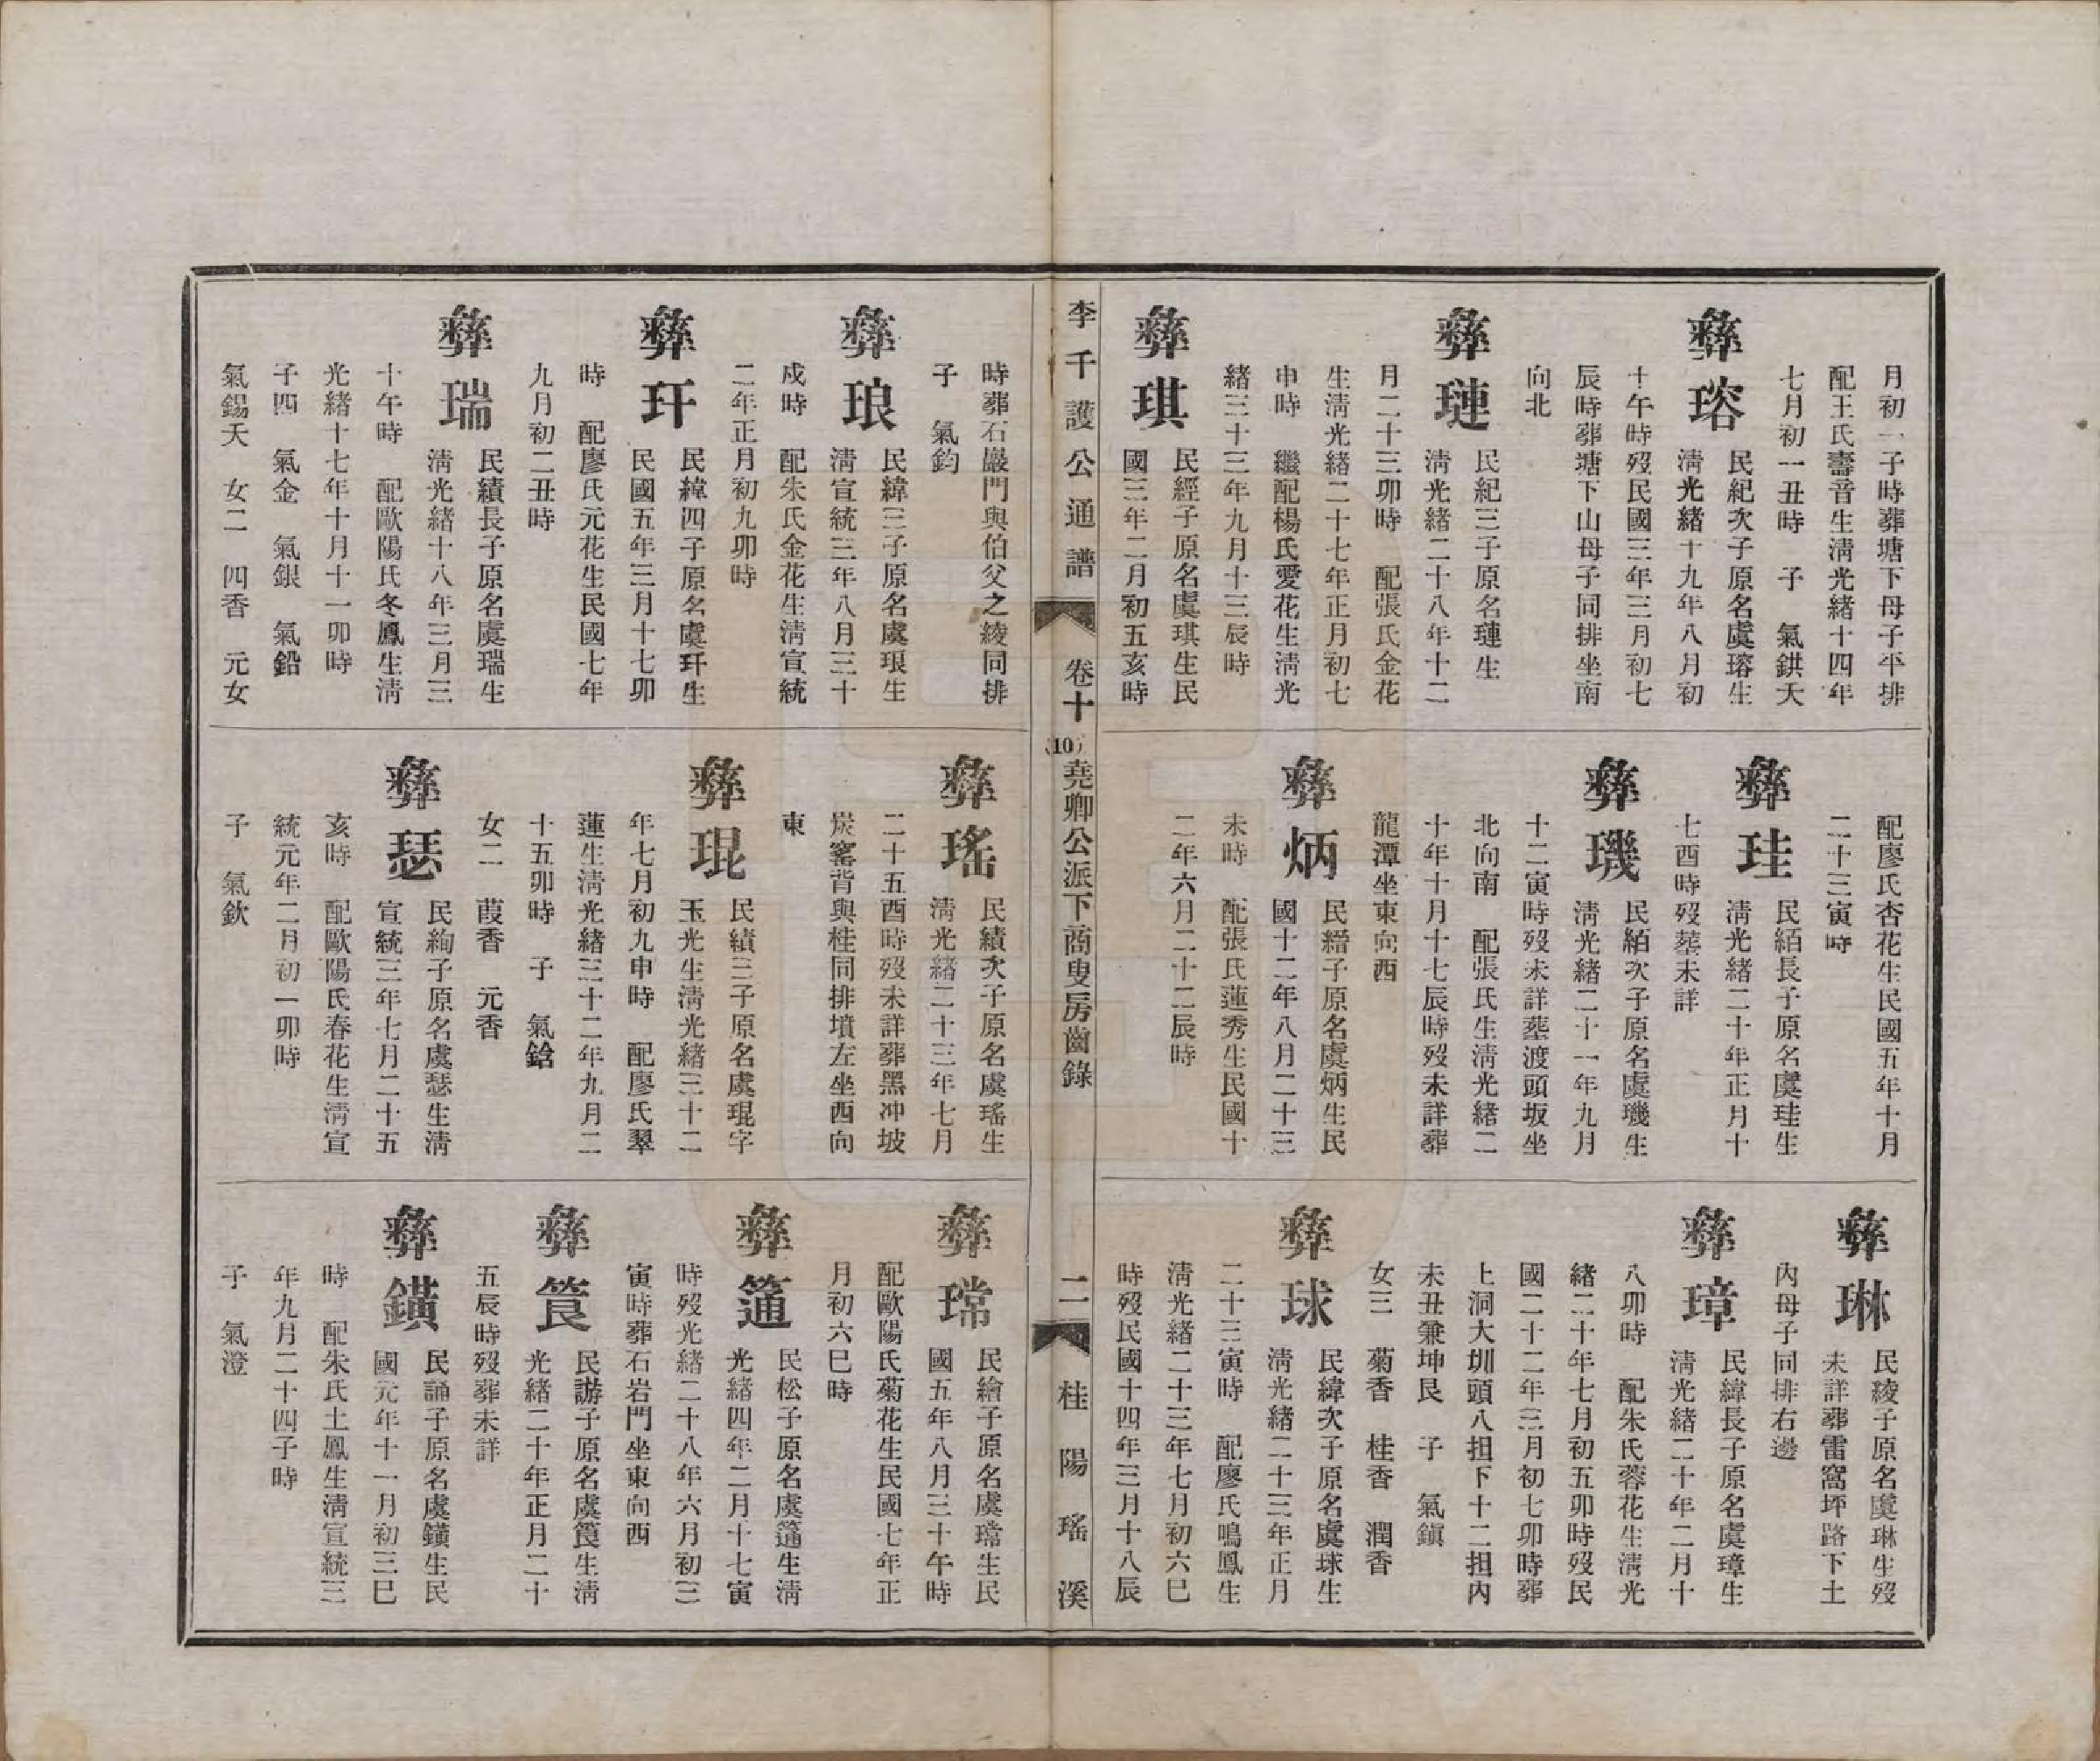 月初一子時葬塘下母子平排
配王氏壽音生清光緒十四年
七月初一丑時　子　氣鉷夭
彝瑢
民紀次子原名虞瑢生
清光緒十九年八月初
十午時歿民國三年三月初七
辰時葬塘下山母子同排坐南
向北
彝璉
民紀三子原名璉生
清光緒二十八年十二
月二十三卯時　配張氏金花
生清光緒二十七年正月初七
申時　繼配楊氏愛花生清光
緒三十三年九月十三辰時
彝琪
民經子原名虞琪生民
國三年二月初五亥時
配廖氏杏花生民國五年十月
二十三寅時
彝珪
民紹長子原名虞珪生
清光緒二十年正月十
七酉時歿葬未詳
彝璣
民紹次子原名虞璣生
清光緒二十一年九月
十二寅時歿未詳葬渡頭坂坐
北向南　配張氏生清光緒二
十年十月十七辰時歿未詳葬
龍潭坐東向西
彝炳
民縉子原名虞炳生民
國十二年八月二十三
未時　配張氏蓮秀生民國十
二年六月二十二辰時
彝琳
民綾子原名虞琳生歿
未詳葬雷窩坪路下土
內母子同排右邊
彝璋
民緯長子原名虞璋生
清光緒二十年二月十
八卯時　配朱氏蓉花生清光
緒二十年七月初五卯時歿民
國二十二年三月初七卯時葬
上洞大圳頭八担下十二担內
未丑兼坤艮　子　氣鎭
女三　菊香　桂香　潤香
彝球
民緯次子原名虞球生
清光緒二十三年正月
二十三寅時　配廖氏鳴鳳生
清光緒二十三年七月初六巳
時歿民國十四年三月十八辰
李千護公通譜　卷十　(10)　堯卿公派下商叟房齒錄　二　桂陽瑤溪
時葬石巖門與伯父之綾同排
子　氣鈞
彝琅
民緯三子原名虞琅生
清宣統三年八月三十
戍時　配朱氏金花生清宣統
二年正月初九卯時
彝玕
民緯四子原名虞玕生
民國五年三月十七卯
時　配廖氏元花生民國七年
九月初二丑時
彝瑞
民績長子原名虞瑞生
清光緒十八年三月三
十午時　配歐陽氏冬鳳生清
光緒十七年十月十一卯時
子四　氣金　氣銀　氣鉛
氣錫夭　女二　四香　元女
彝瑤
民績次子原名虞瑤生
清光緒二十三年七月
二十五酉時歿未詳葬黑冲坡
炭窰背與桂同排墳左坐西向
東
彝琨
民績三子原名虞琨字
玉光生清光緒三十二
年七月初九申時　配廖氏翠
蓮生清光緒三十二年九月二
十五卯時　子　氣鎗
女二　葭香　元香
彝瑟
民絢子原名虞瑟生清
宣統三年七月二十五
亥時　配歐陽氏春花生清宣
統元年二月初一卯時
子　氣欽
彝瑺
民繪子原名虞瑺生民
國五年八月三十午時
配歐陽氏菊花生民國七年正
月初六巳時
彝箍
民松子原名虞生清
光緒四年二月十七寅
時歿光緒二十八年六月初三
寅時葬石岩門坐東向西
彝筤
民諺子原名虞筤生清
光緒二十年正月二十
五辰時歿葬未詳
彝鐄
民誦子原名虞鐄生民
國元年十一月初三巳
時　配朱氏土鳳生清宣統三
年九月二十四子時
子　氣澄